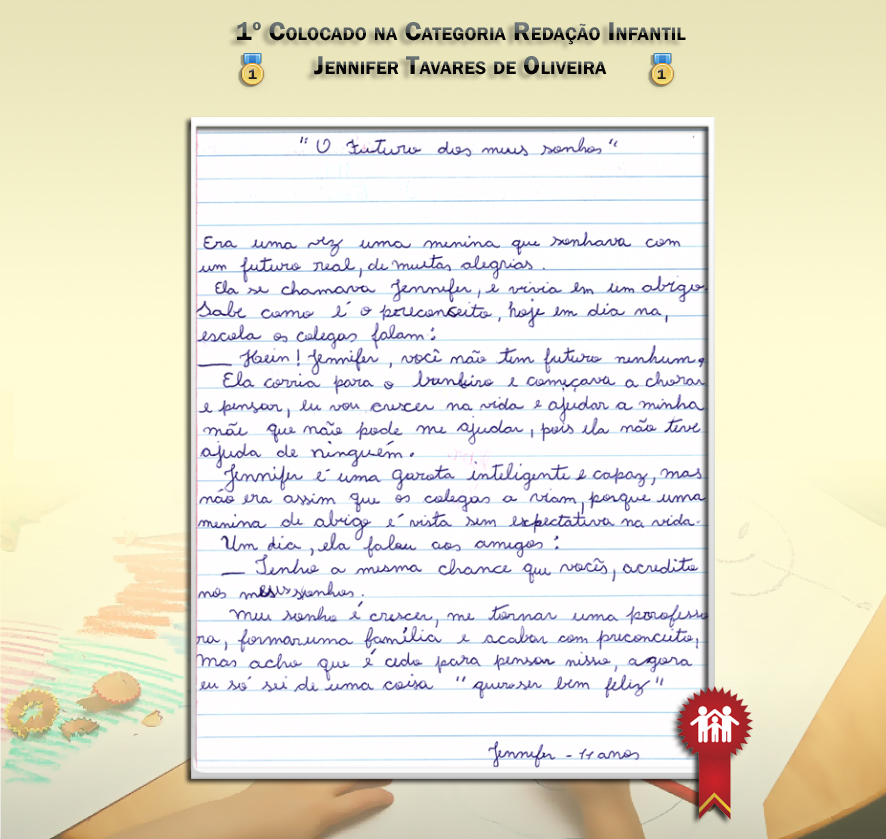 1º Colocado na Categoria Redação Infantil
Jennifer Tavares de Oliveira
1 1
"O Futuro dos meus sonhos"
Era uma vez uma menina que sonhava com
um futuro real, de muitas alegrias.
Ela se chamava Jennifer, e vivia em um abrigo.
Sabe como é o preconceito, hoje em dia na,
escola os colegas falam:
— Hein! Jennifer, você não tem futuro nenhum.
Ela corria para o banheiro e começava a chorar
e pensar, eu vou crescer na vida e ajudar a minha
mãe que não pode me ajudar, pois ela não teve
ajuda de ninguém.
Jennifer é uma garota inteligente e capaz, mas
não era assim que os colegas a viam, porque uma
menina de abrigo é vista sem expectativa na vida.
Um dia, ela falou aos amigos:
— Tenho a mesma chance que vocês, acredito
nos meus sonhos.
Meu sonho é crescer, me tornar uma professo
ra, formar uma família e acabar com preconceito,
Mas acho que é cedo para pensar nisso, agora
eu só sei de uma coisa "quero ser bem feliz"
Jennifer - 11 anos